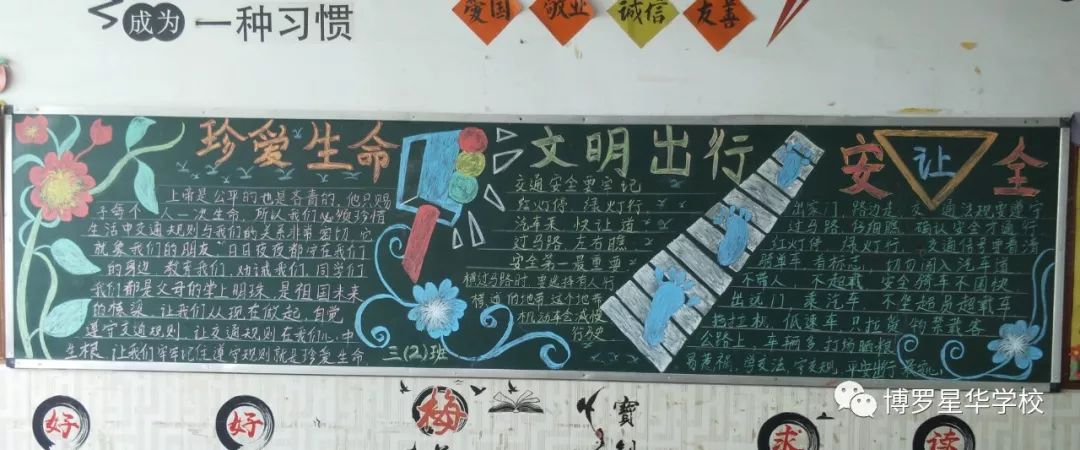 成为 一种习惯
爱国 敬业 诚信 友善
珍爱生命
上帝是公平的也是吝啬的,他只赐
予每个人一次生命,所以我们必须珍惜
生活中交通规则与我们的关系非常密切,它
就象我们的朋友"日日夜夜都守在我们
的身边,教育我们,劝诫我们,同学们
我们都是父母的掌上明珠,是祖国未来
的栋梁,让我们从现在做起,自觉
遵守交通规则,让交通规则在我们心中
生根,让我们牢牢记住遵守规则就是珍爱生命
三(2)班
文明出行
交通安全要牢记
红灯停,绿灯行,
汽车来 快让道
过马路 左右瞧
安全第一最重要
横过马路时,要选择有人行
横道的地带 这个地带
机动车会减慢
行驶
安 让 全
出家门,路边走,交通法规要遵守
过马路,仔细瞧,确认安全才通行
红灯停,绿灯行,交通信号要看清
骑单车,看标志,切勿闯入汽车道
不带人,不超载,安全骑车不图快
出远门,乘汽车,不坐超员超载车
拖拉机,低速车,只拉货物禁载客
公路上,车辆多,打场晒粮
学交法,守交规,平安出行
好 好 梅 寶 求 读
博罗星华学校